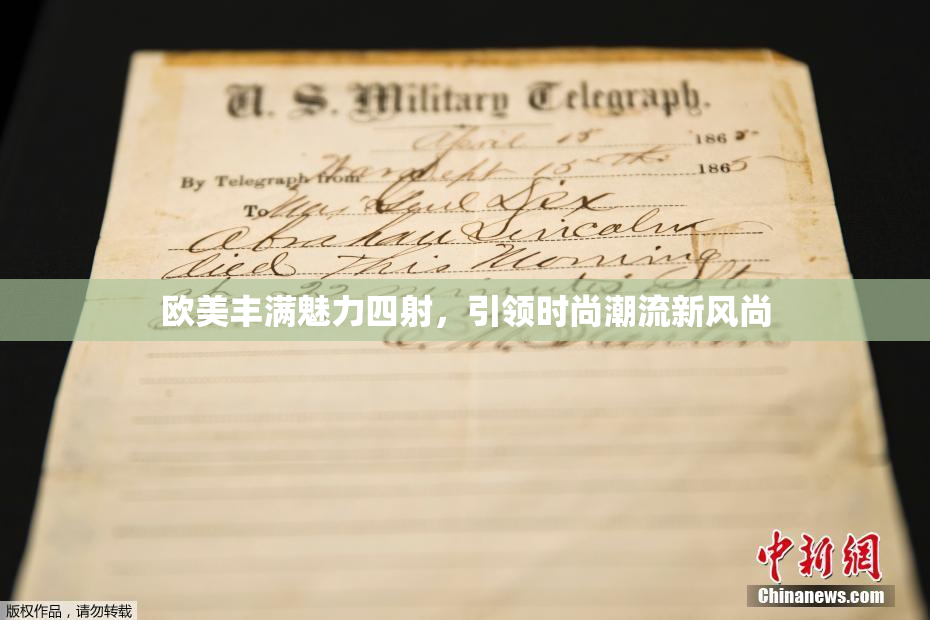 U. S. Military Telegraph.
April 15 1865
By Telegraph from War Dept 15th 1865
To Maj Genl Dix
Abraham Lincoln
died This Morning
at 22 minutes after
欧美丰满魅力四射，引领时尚潮流新风尚
中新网
Chinanews.com
版权作品，请勿转载